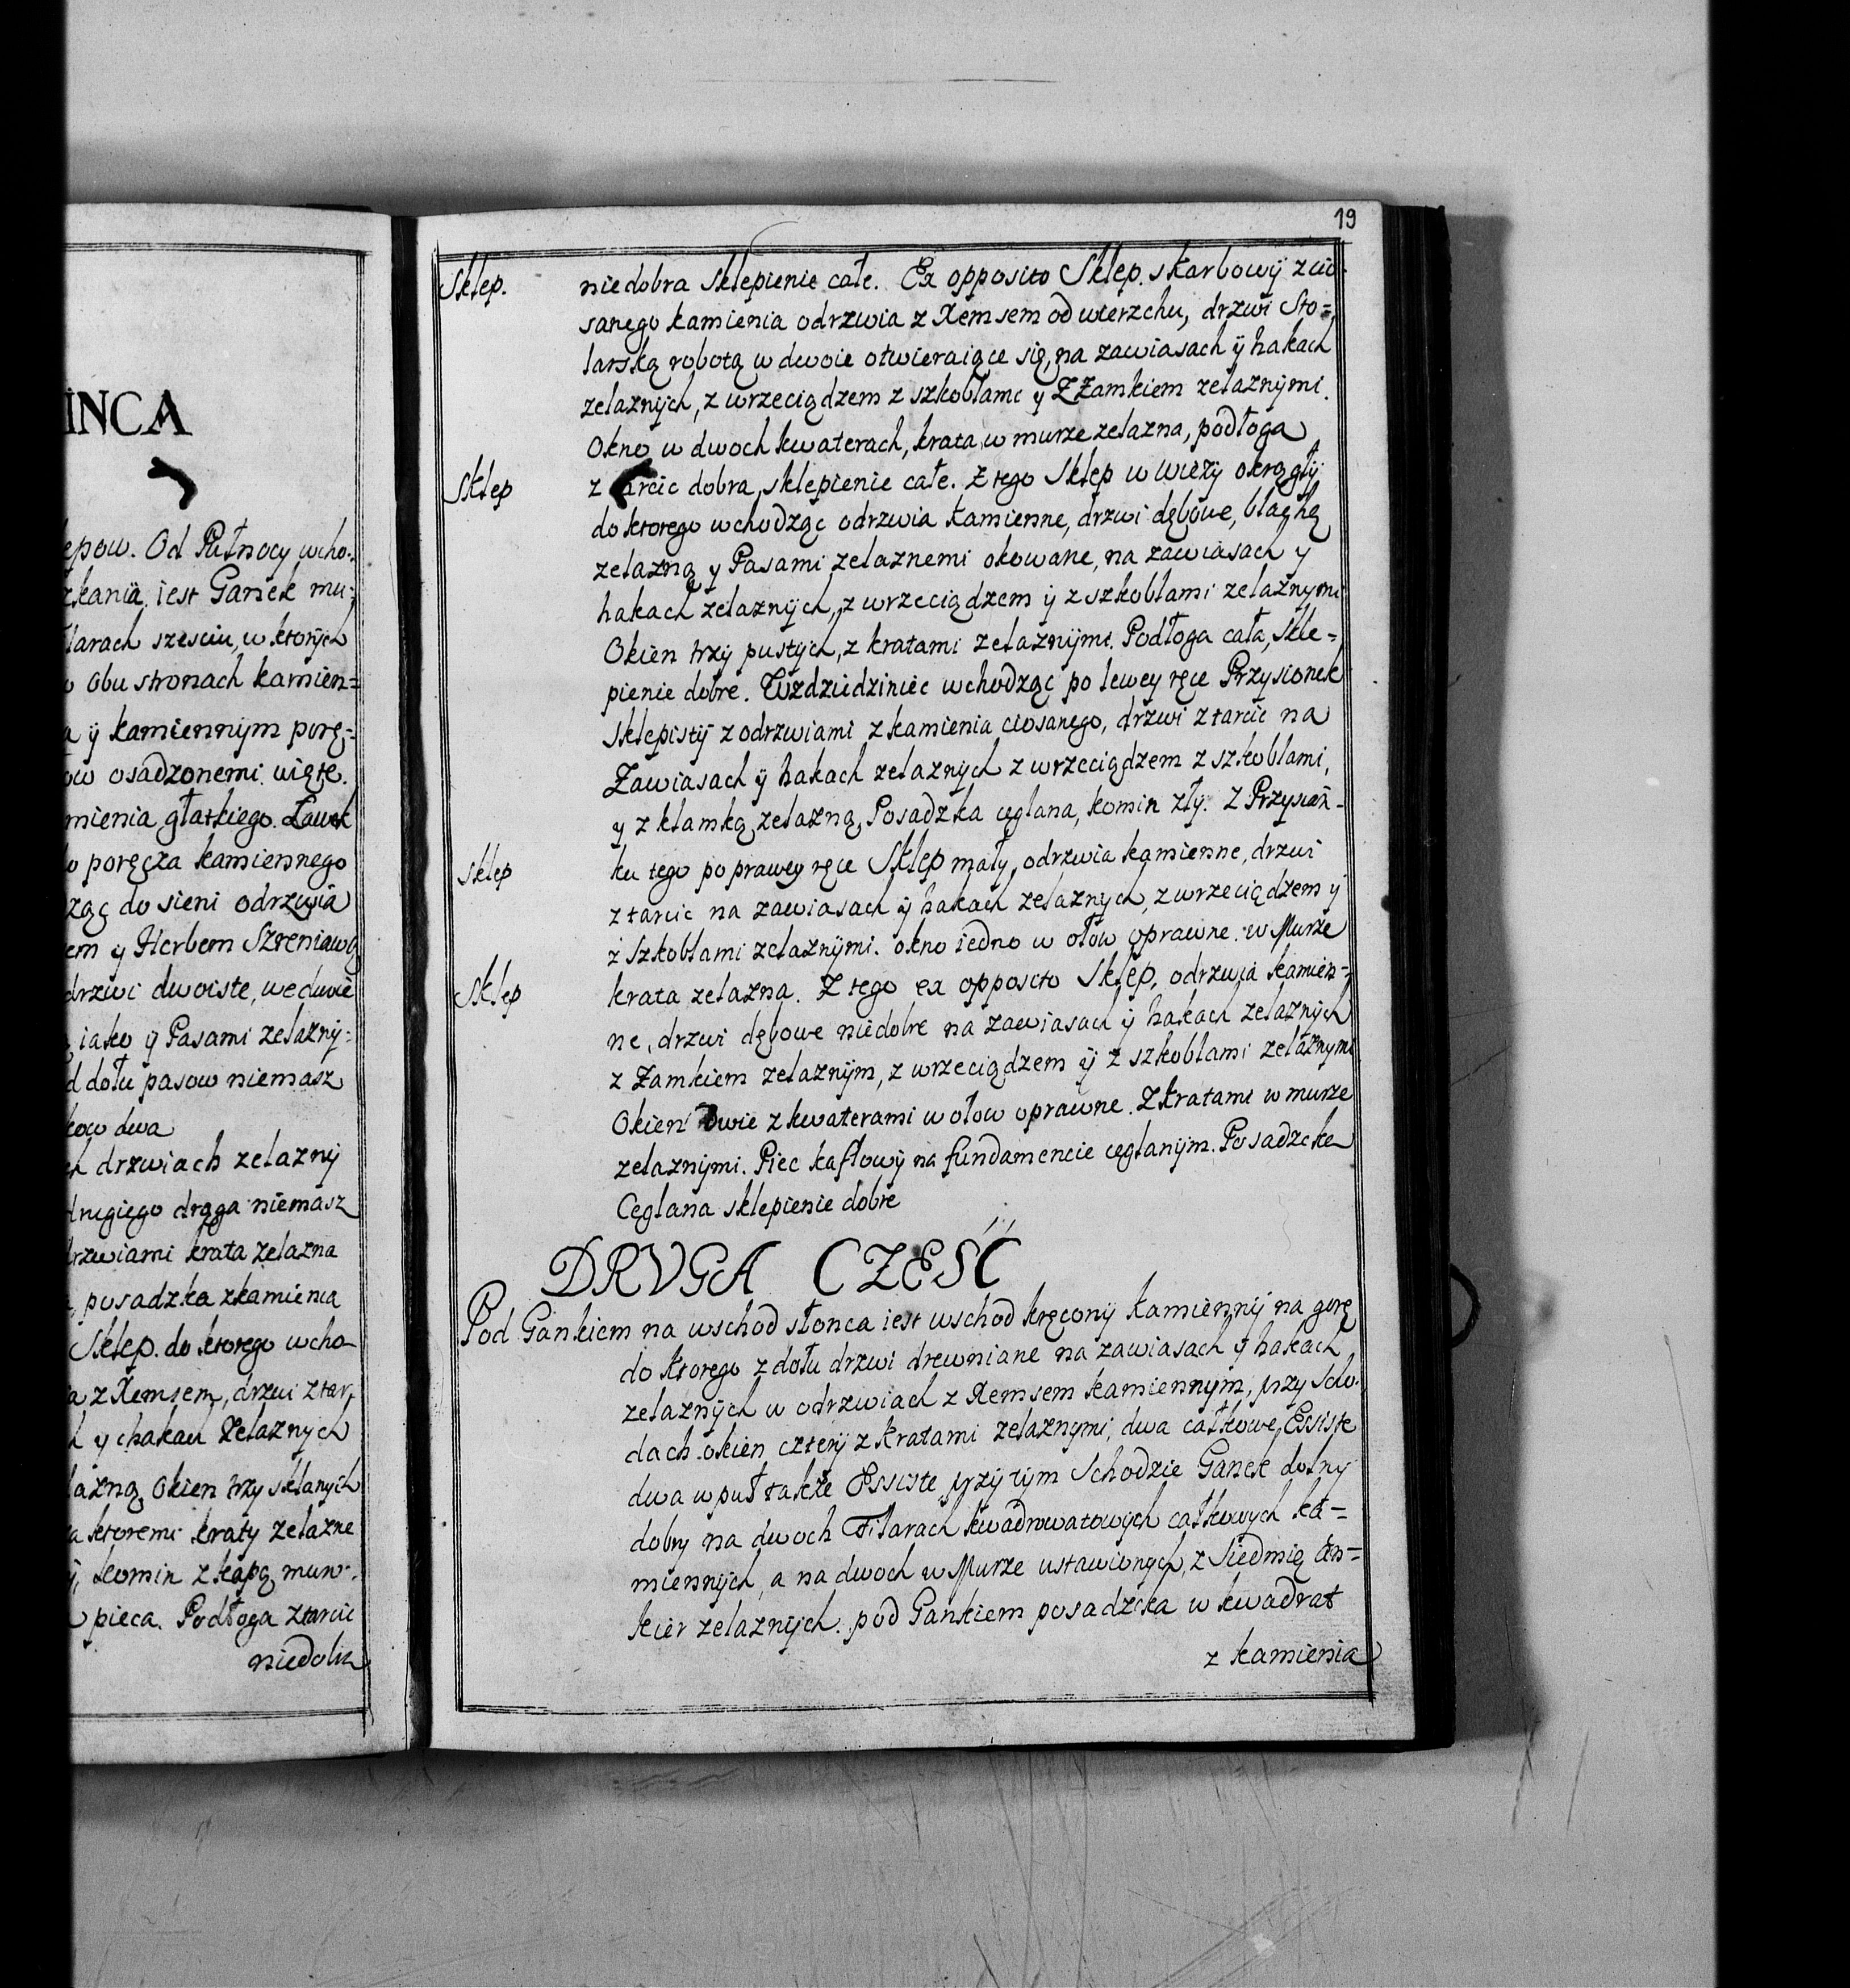 INCA
epow. Od Pułnocy wcho-
zkania iest Ganek mu-
larach szesciu, w ktorÿch
o obu stronach kamien=
a ÿ kamiennÿm porę-
ow osadzonemi
mienia głatkiego. Ławek
o poręcza kamiennego
ząc do sieni odrzwia
em y Herbem Szreniawą
drzwi dwoiste, we dwie
iako y Pasami zelazny-
d dołu pasow niemasz
kow dwa
ch drzwiach zelazny
drugiego drąga niemasz
drzwiami krata zelazna
posadzka z kamienia
Sklep. do ktorego wcho-
ia z Xemsem, drzwi z tar-
h y hakach zelaznych
lazną, Okien trzy sklanych
a ktoremi kraty zelazne
komin z kapą muro-
pieca. Podłoga z tarcic
niedobra
19
Sklep. niedobra Sklepienie całe. Ex opposito Sklep. skarbowÿ z cio-
sanego kamienia odrzwia z Xemsem od wierzchu, drzwi Sto=
larską robotą w dwoie otwieraiące się, na zawiasach ÿ hakach
zelaznÿch, z wrzeciądzem z szkoblami y Z Zamkiem zelaznÿmi.
Okno w dwoch kwaterach, krata w murze zelazna, podłoga
Sklep z tarcic dobra, sklepienie całe. Z tego Sklep w wieży okrągłÿ
do ktorego wchodząc odrzwia kamienne, drzwi dębowe, blachą
zelazną y Pasami zelaznemi okowane, na zawiasach y
hakach zelaznÿch, z wrzeciądzem ÿ z szkoblami zelaznymi
Okien trzÿ pustÿch, z kratami zelaznÿmi. Podłoga cała, Skle=
pienie dobre. W dziedziniec wchodząc po lewey ręce Przysionek
sklepistÿ z odrzwiami z kamienia ciosanego, drzwi z tarcic na
Zawiasach ÿ hakach zelaznych z wrzeciądzem z szkoblami,
y z klamką zelazną, Posadzka ceglana, komin zły. Z Przysion-
Sklep ku tego po prawey ręce Sklep mały, odrzwia kamienne, drzwi
z tarcic na zawiasach ÿ hakach zelaznych, z wrzeciądzem ÿ
z szkoblami zelaznÿmi. okno iedno w ołow oprawne. w Murze
Sklep krata zelazna. Z tego ex opposito Sklep, odrzwia kamien=
ne, drzwi dębowe niedobre na zawiasach ÿ hakach zelaznych
z Zamkiem zelaznÿm, z wrzeciądzem ÿ z szkoblami zelaznymi
Okien dwie z kwaterami w ołow oprawne. Z kratami w murze
zelaznÿmi. Piec kaflowÿ na fundamencie ceglanÿm. Posadzcka
Ceglana sklepienie dobre
DRVGA CZESĆ
Pod Gankiem na wschod słonca iest wschod kręconÿ kamiennÿ na gorę
do ktorego z dołu drzwi drewniane na zawiasach ÿ hakach
zelaznÿch w odrzwiach z Xemsem kamiennym, przy Scho-
dach okien czterÿ z kratami zelaznymi, dwa całkowe, Essiste
dwa w puł także Essiste, przÿ tÿm Schodzie Ganek dolny
dobry na dwoch Filarach kwadrowatowych całkowych ka=
miennÿch, a na dwoch w Murze ustawionych, z Siedmią An=
kier zelaznÿch. pod Gankiem posadzcka w kwadrat
z kamienia